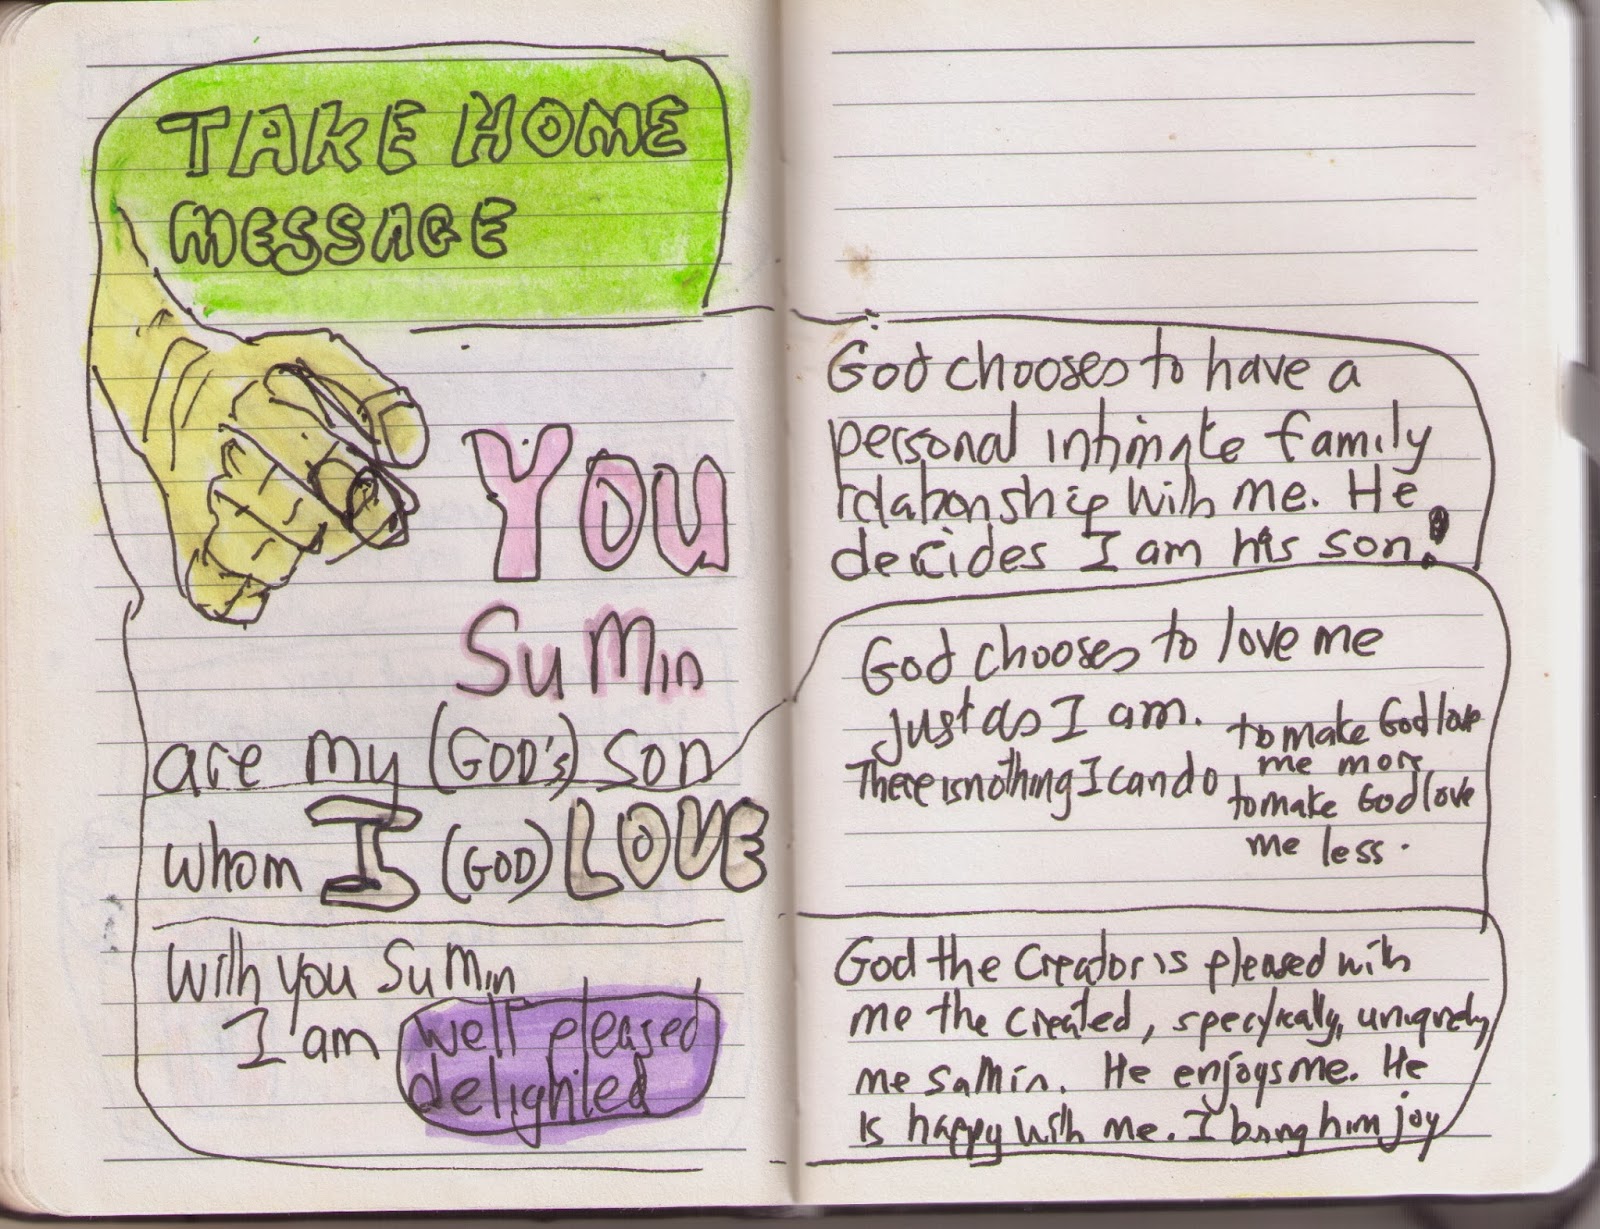 TAKE HOME
MESSAGE
YOU
SuMin
are my (GOD's) son
whom I (GOD) LOVE
With you SuMin
I am well pleased
delighted
God chooses to have a
personal intimate family
relationship with me. He
decides I am his son!
God chooses to love me
just as I am.
There is nothing I can do
to make God love
me more
to make God love
me less.
God the Creator is pleased with
me the created, specifically, uniquely
me SuMin. He enjoys me. He
is happy with me. I bring him joy